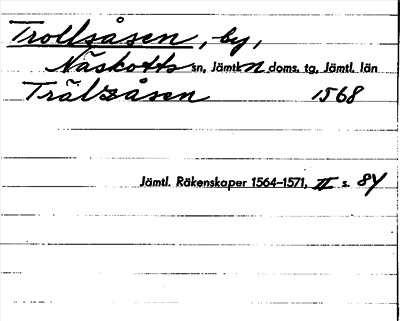 Trollsåsen, by,
Näskotts sn, Jämtl. N doms. tg, Jämtl. län
Trålsåsen 1568
Jämtl. Räkenskaper 1564–1571, II s. 84